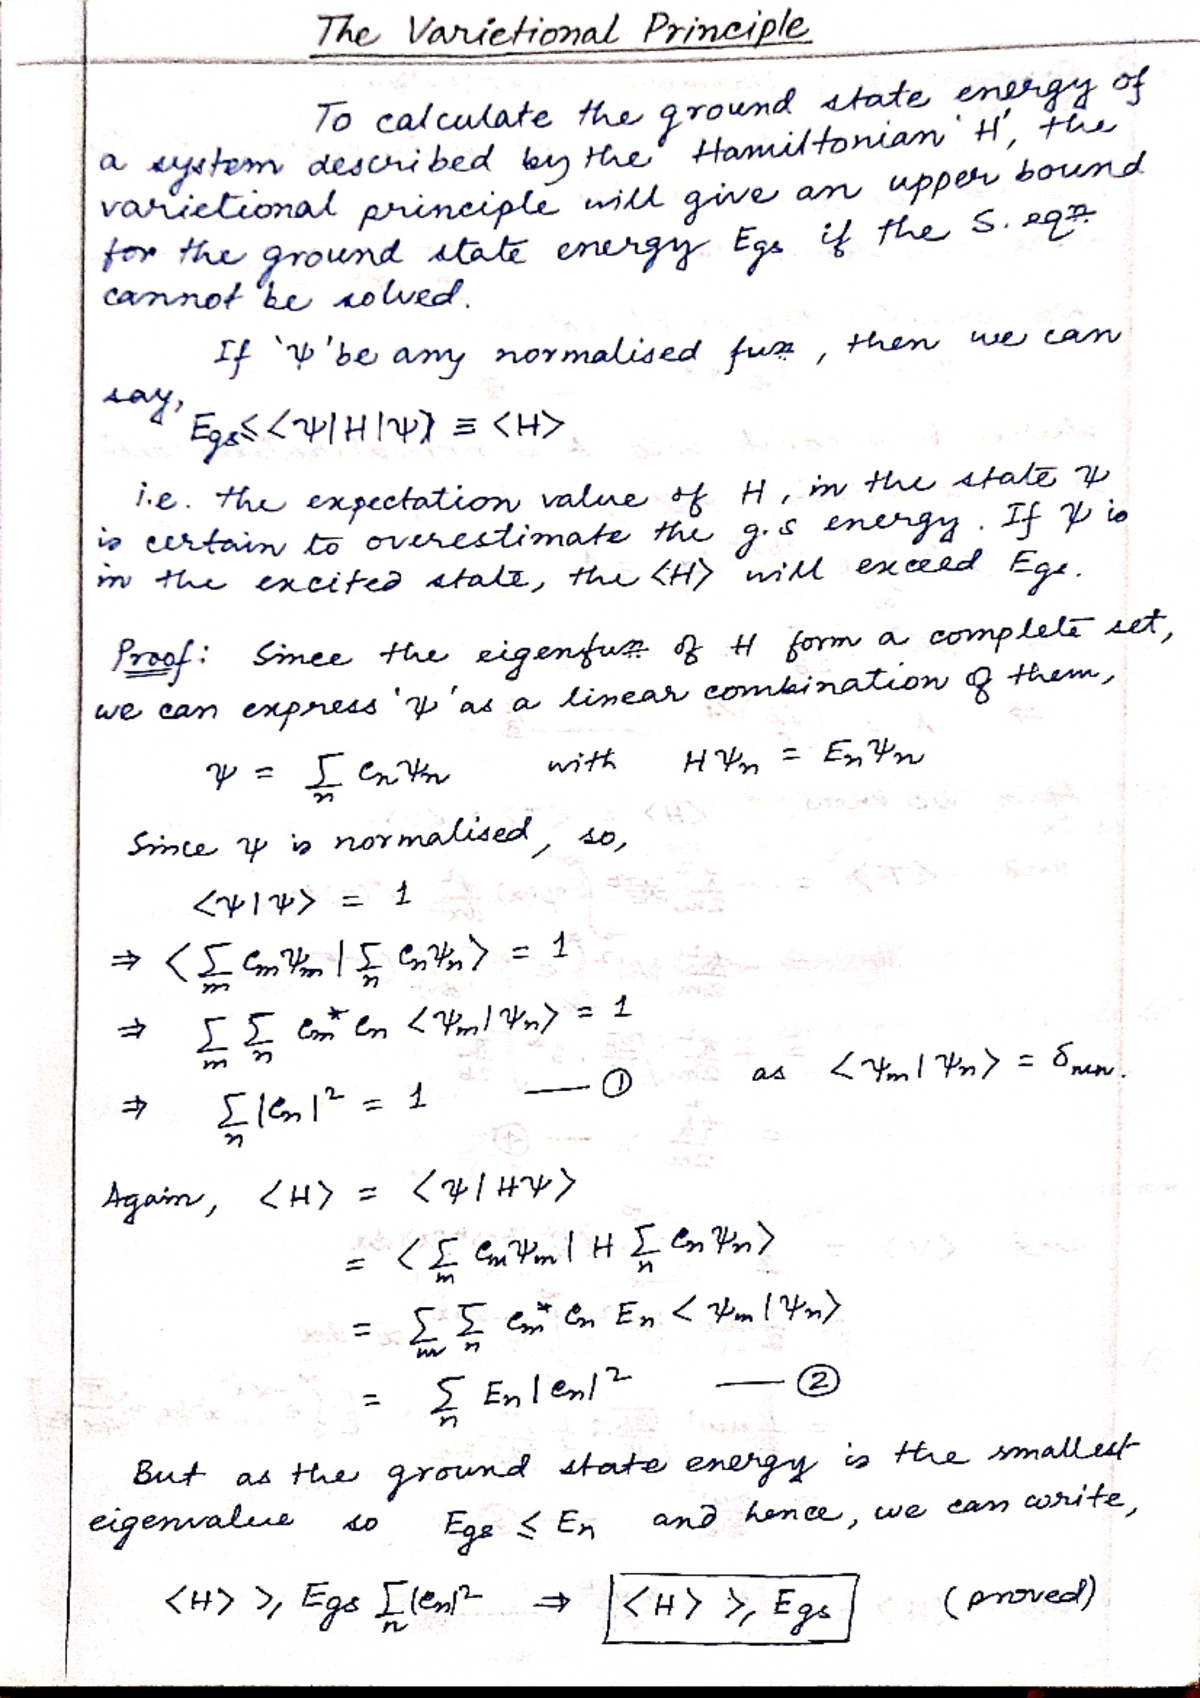 The Varietional Principle
To calculate the ground state energy of
a system described by the Hamiltonian 'H', the
varietional principle will give an upper bound
for the ground state energy Egs if the S. eqn.
cannot be solved.
If 'ψ' be any normalised fun, then we can
say,
Egs ≤ <ψ|H|ψ> ≡ <H>
i.e. the expectation value of H, in the state ψ
is certain to overestimate the g.s energy. If ψ is
in the excited state, the <H> will exceed Egs.
Proof: Since the eigenfun of H form a complete set,
we can express 'ψ' as a linear combination of them,
ψ = Σ_n c_n ψ_n with Hψ_n = E_n ψ_n
Since ψ is normalised, so,
<ψ|ψ> = 1
⇒ <Σ_m c_m ψ_m | Σ_n c_n ψ_n> = 1
⇒ Σ_m Σ_n c_m* c_n <ψ_m|ψ_n> = 1
⇒ Σ_n |c_n|² = 1 —— ① as <ψ_m|ψ_n> = δ_mn.
Again, <H> = <ψ|Hψ>
= <Σ_m c_m ψ_m | H Σ_n c_n ψ_n>
= Σ_m Σ_n c_m* c_n E_n <ψ_m|ψ_n>
= Σ_n E_n |c_n|² —— ②
But as the ground state energy is the smallest
eigenvalue so Egs ≤ En and hence, we can write,
<H> ≥ Egs Σ_n |c_n|² ⇒ <H> ≥ Egs (proved)